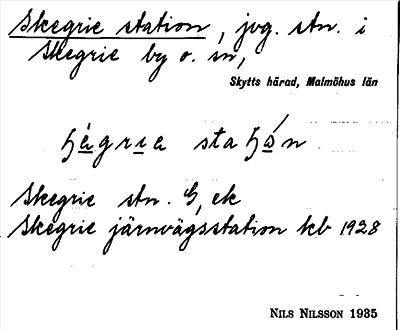 Skegrie station, jvg. stn. i
Skegrie by o. sn,
Skytts härad, Malmöhus län
ɧègrıe staɧón
Skegrie stn. G, ek
Skegrie järnvägsstation kb 1928
NILS NILSSON 1935